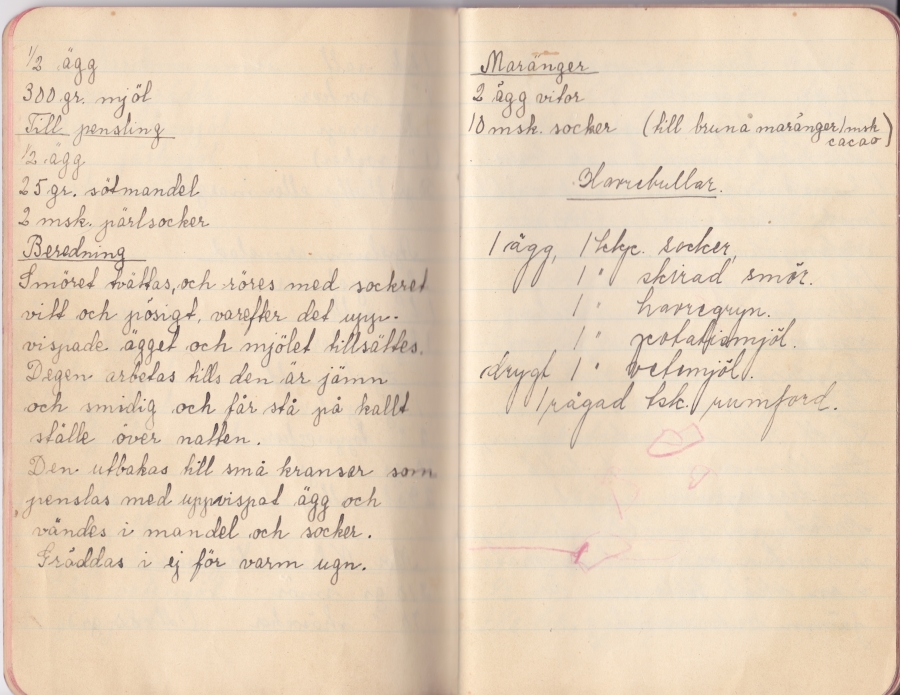 1/2 ägg
300 gr. mjöl
Till pensling
1/2 ägg
25 gr. sötmandel
2 msk. pärlsocker
Beredning
Smöret tvättas, och röres med sockret
vitt och pösigt, varefter det upp-
vispade ägget och mjölet tillsättes.
Degen arbetas tills den är jämn
och smidig och får stå på kallt
ställe över natten.
Den utbakas till små kranser som
penslas med uppvispat ägg och
vändes i mandel och socker.
Gräddas i ej för varm ugn.
Maränger
2 ägg vitor
10 msk. socker (till bruna maränger 1 msk
cacao)
Havrebullar.
1 ägg, 1 kkp. socker,
1 " skirad smör.
1 " havregryn.
1 " potatismjöl.
drygt 1 " vetemjöl.
1 rågad tsk. rumford.